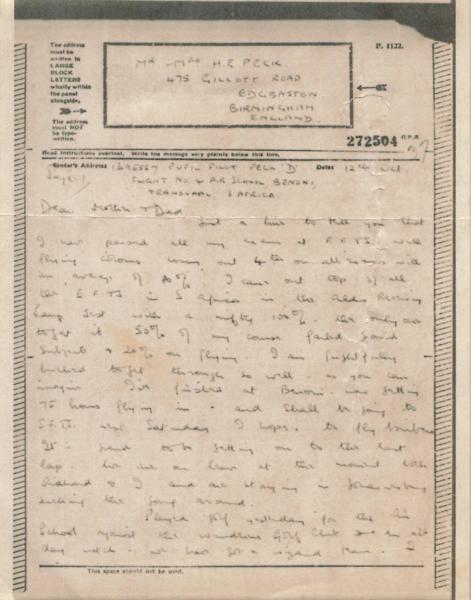 The address
must be
written in
LARGE
BLOCK
LETTERS
wholly within
the panel
alongside.
The address
must NOT
be type-
written.
P. 1122.
MR & MRS H E PECK
475 GILLOTT ROAD
EDGBASTON
BIRMINGHAM
ENGLAND.
272504
Read instructions overleaf. Write the message very plainly below this line.
Sender's Address PUPIL PILOT PECK 'D' Date 12th Oct
FLIGHT No 4 AIR SCHOOL BENONI,
TRANSVAAL, S AFRICA
Dear Mother & Dad
Just a line to tell you that
I have passed all my exams at E.F.T.S. with
flying colours coming out 4th on all exams with
an average of 80% I came out top of all
the E.F.T.S. in S Africa in the Aldis
Lamp test with a nifty 100% the only one
to get it 50% of my course failed ground
subjects & 20% on flying. I am frightfully
bucked to get through so well as you can
imagine I've finished at Benoni now
75 hours flying in and shall be going to
S.F.T.S. next Saturday I hope to fly bombers
It's good to be getting on to the last
lap. We are on leave at the moment
& I are staying in Johannesburg
around.
Played golf yesterday for the Air
School against the Golf Club in an all
day match we have got a wizard team. I
This space should not be used.